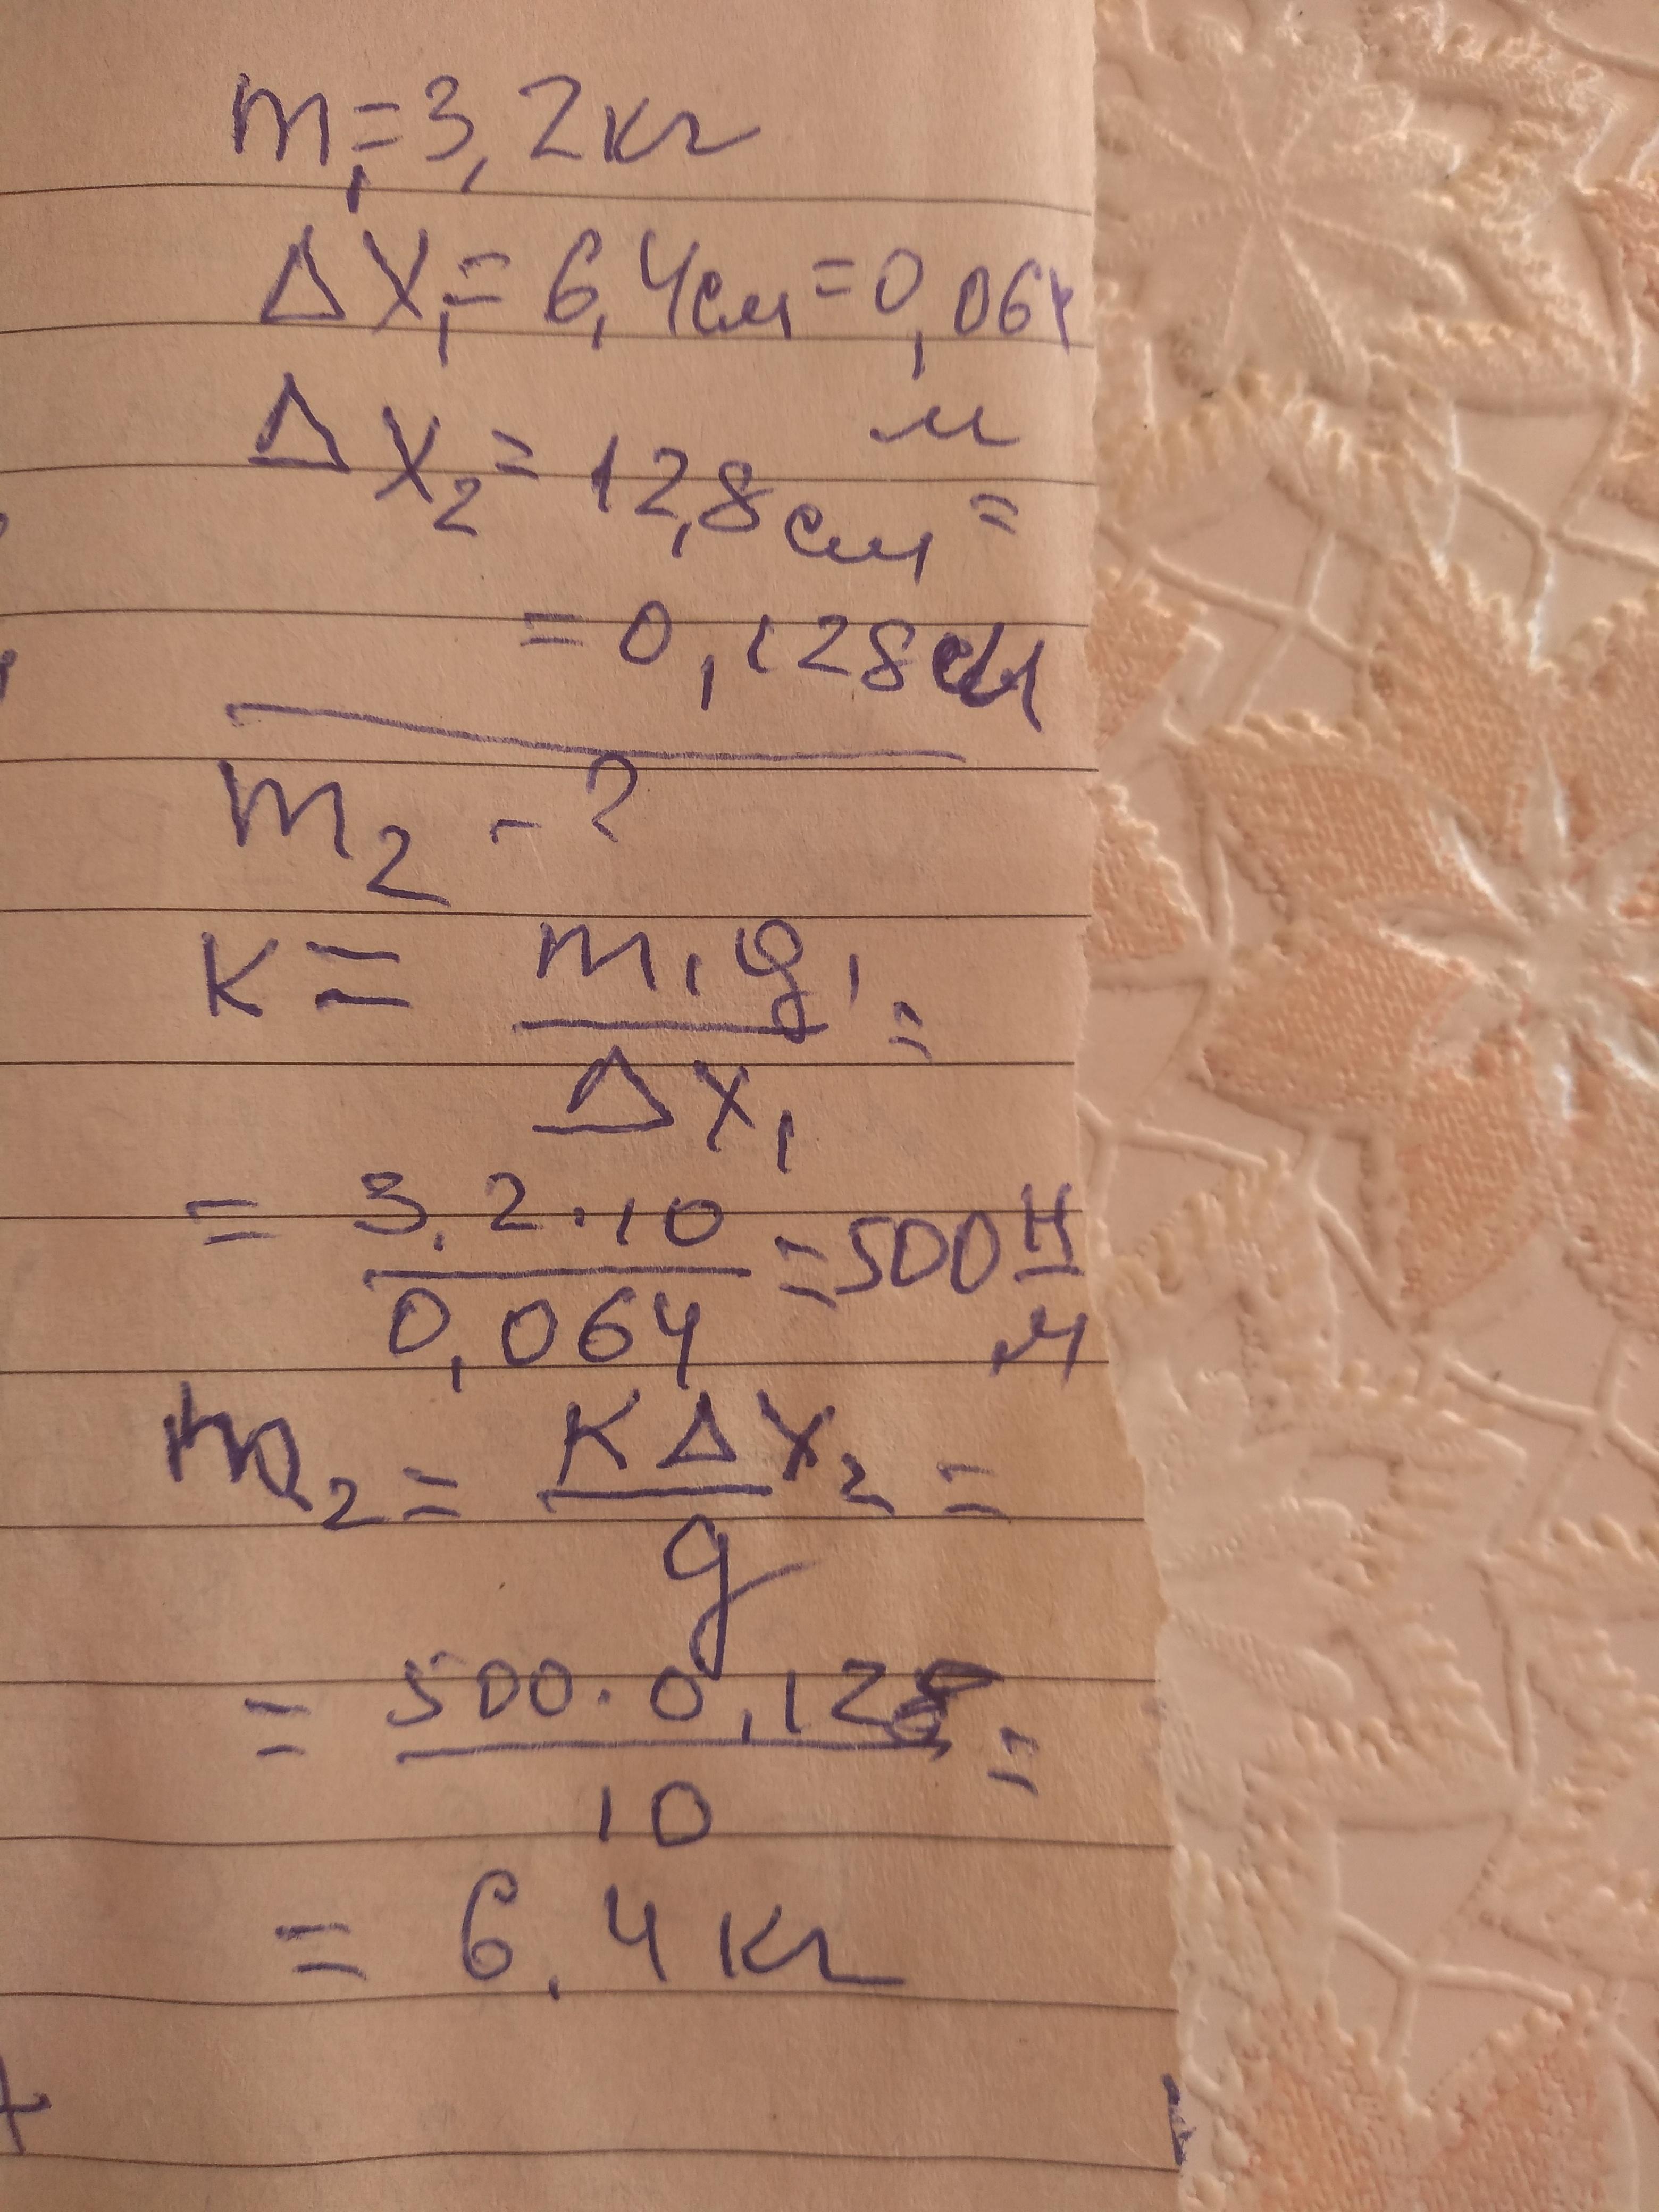 m₁=3,2кг
ΔX₁=6,4см=0,064
м
ΔX₂=12,8см=
=0,128м
m₂-?
K=m₁g/ΔX₁=
=3,2·10/0,064=500Н/м
m₂=KΔX₂/g=
=500·0,128/10=
=6,4кг